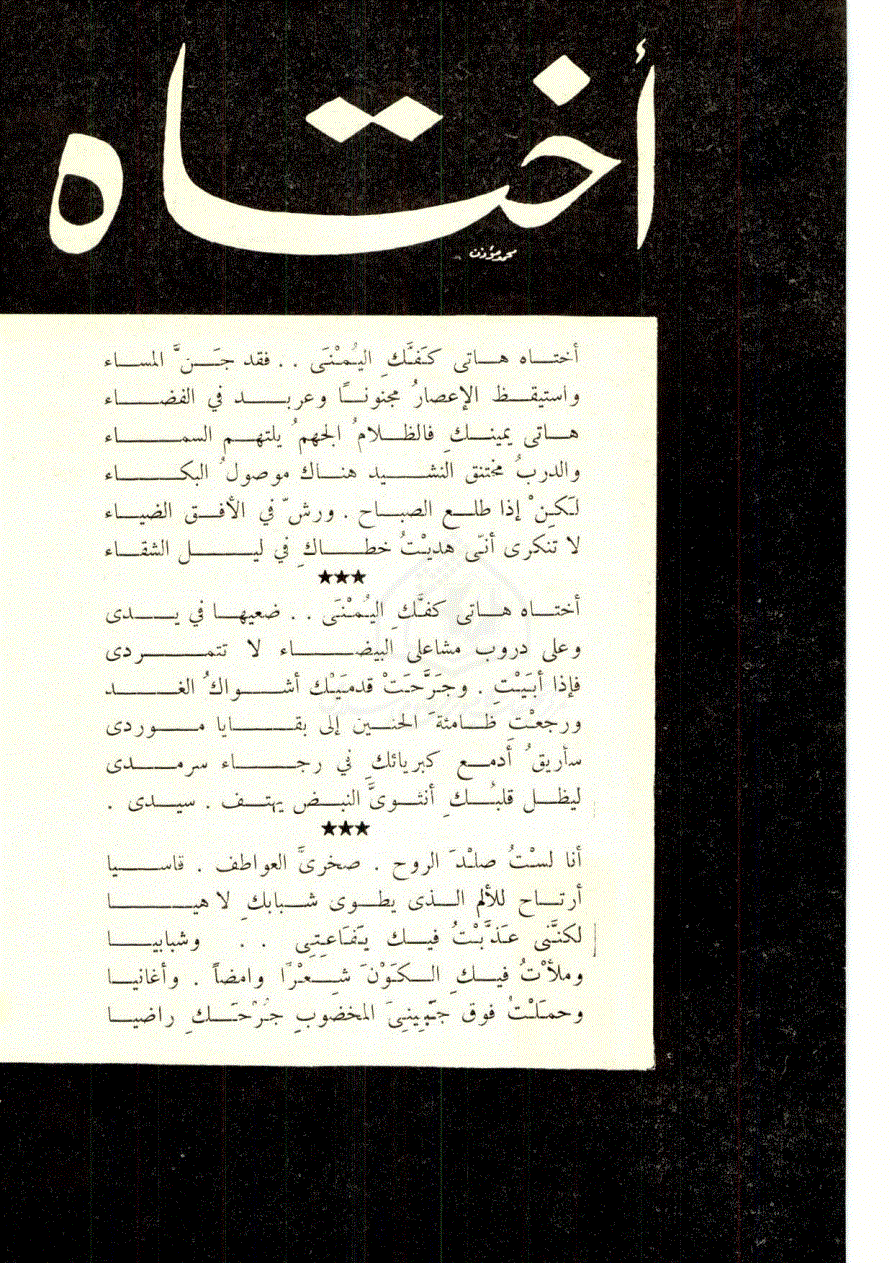 أختاه
محمد مؤذن
أختاه هاتى كَفَّكِ اليُمْنَى . . فقد جَنَّ المساء
واستيقظ الإعصارُ مجنونًا وعربد في الفضاء
هاتى يمينكِ فالظلامُ الجهمُ يلتهم السماء
والدربُ مختنق النشيد هناك موصولُ البكاء
لكنْ إذا طلع الصباح . ورشّ في الأفق الضياء
لا تنكرى أنّى هديْتُ خطاكِ في ليل الشقاء
★★★
أختاه هاتى كفَّكِ اليُمْنَى . . ضعيها في يدى
وعلى دروب مشاعلى البيضاء لا تتمردى
فإذا أبَيْتِ . وجَرَّحَتْ قدمَيْك أشواكُ الغد
ورجعْتِ ظامئةَ الحنين إلى بقايا موردى
سأريقُ أدمع كبريائكِ في رجاء سرمدى
ليظل قلبُكِ أنثوىَّ النبض يهتف . سيدى .
★★★
أنا لسْتُ صلْدَ الروح . صخرىَّ العواطف . قاسيا
أرتاح للألم الذى يطوى شبابكِ لاهيا
لكنَّنى عَذَّبْتُ فيك يَفَاعِتِى . . وشبابيا
وملأْتُ فيكِ الكَوْنَ شِعْرًا وامضاً . وأغانيا
وحمَلْتُ فوق جَبِينِىَ المخضوبِ جُرْحَكِ راضيا